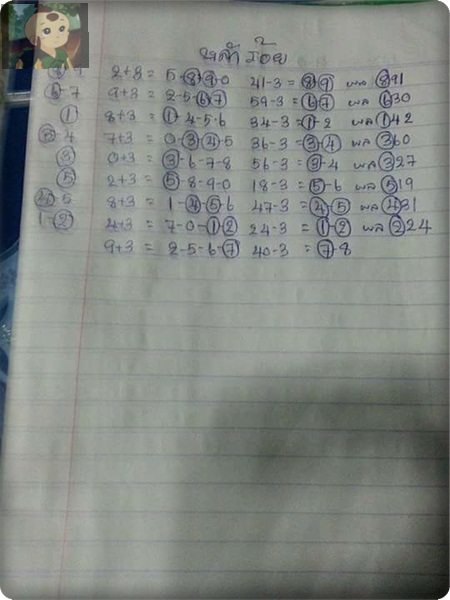 หลักร้อย
8-9 2+3 = 5-8-9-0 41-3 = 8-9 ผล 891
6-7 9+3 = 2-5-6-7 59-3 = 6-7 ผล 630
1 8+3 = 1-4-5-6 34-3 = 1-2 ผล 142
3-4 7+3 = 0-3-4-5 36-3 = 3-4 ผล 360
3 0+3 = 3-6-7-8 56-3 = 3-4 ผล 327
5 2+3 = 5-8-9-0 18-3 = 5-6 ผล 519
4-5 8+3 = 1-4-5-6 47-3 = 4-5 ผล 431
1-2 4+3 = 7-0-1-2 24-3 = 1-2 ผล 224
9+3 = 2-5-6-7 40-3 = 7-8